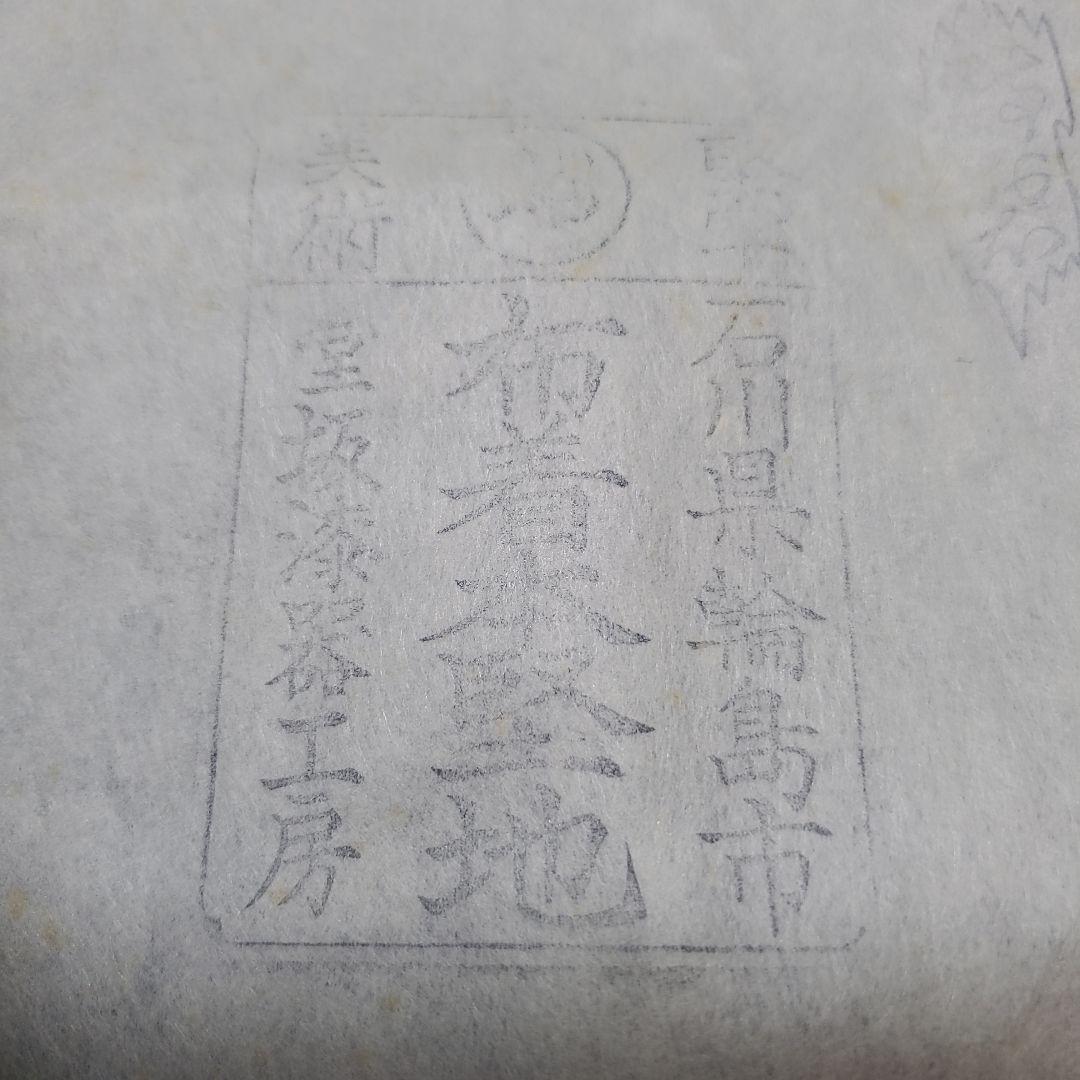 堅牢
美術
石川県輪島市
布着本堅地
堂坂漆器工房